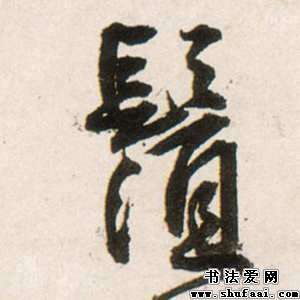 鬚
书法爱网
www.shufaai.com